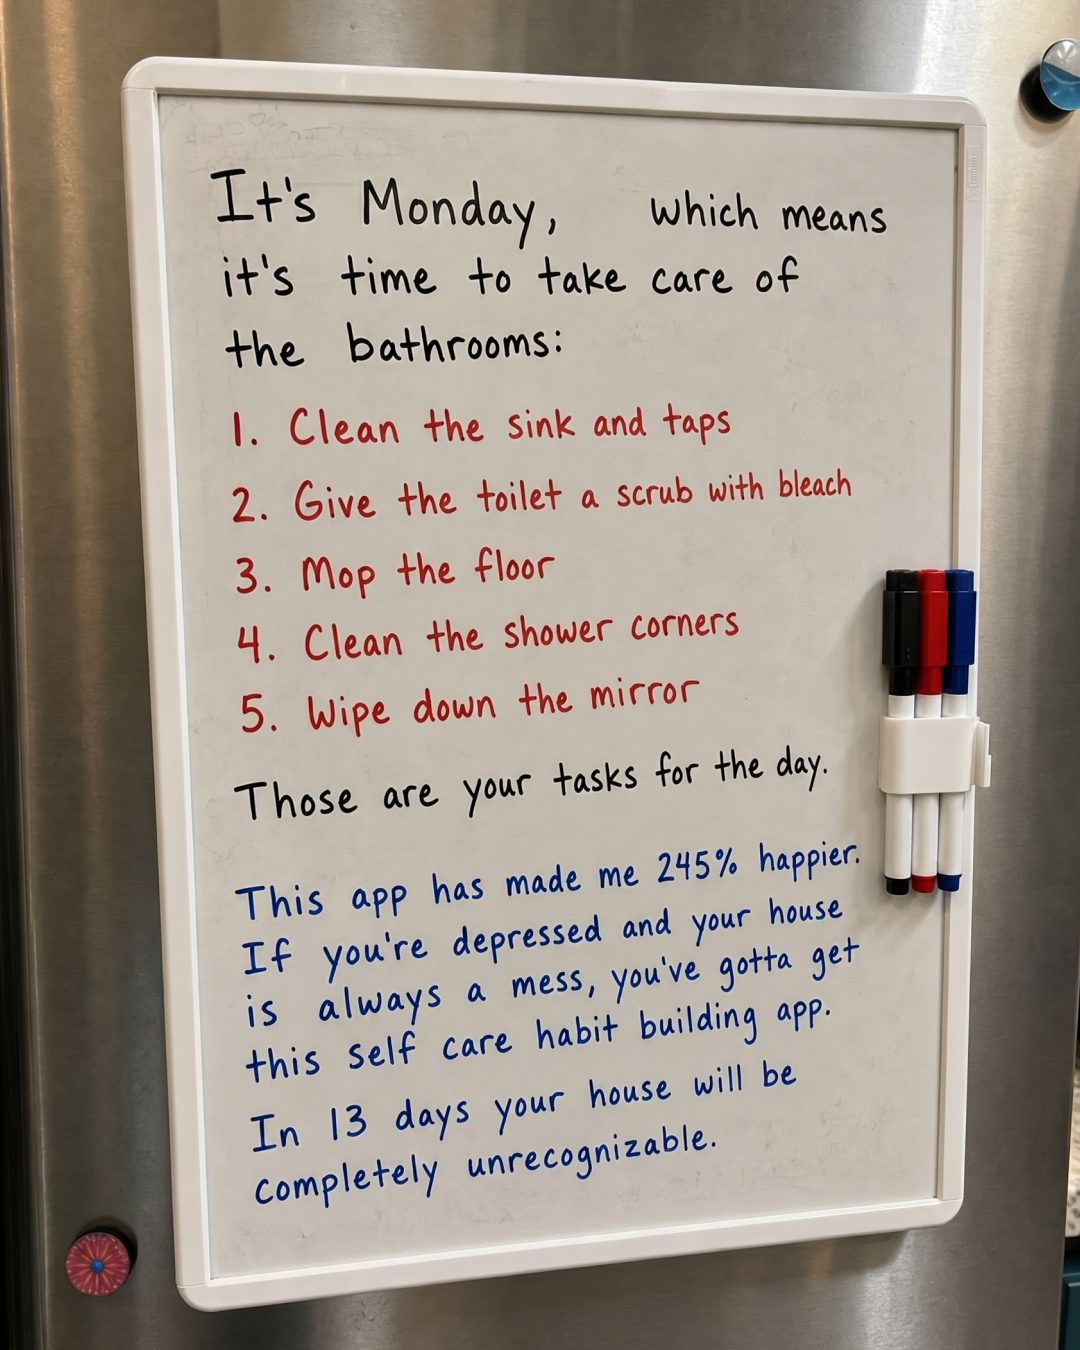 It's Monday, which means
it's time to take care of
the bathrooms:
1. Clean the sink and taps
2. Give the toilet a scrub with bleach
3. Mop the floor
4. Clean the shower corners
5. Wipe down the mirror
Those are your tasks for the day.
This app has made me 245% happier.
If you're depressed and your house
is always a mess, you've gotta get
this self care habit building app.
In 13 days your house will be
completely unrecognizable.